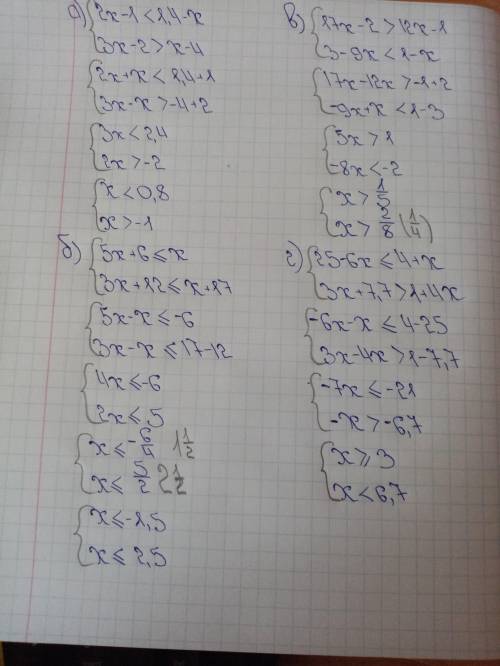 а) 2x-1<1,4-x
3x-2>x-4
2x+x<1,4+1
3x-x>-4+2
3x<2,4
2x>-2
x<0,8
x>-1
б) 5x+6≤x
3x+12≤x+17
5x-x≤-6
3x-x≤17-12
4x≤-6
2x≤5
x≤-6/4 1 1/2
x≤ 5/2 2 1/2
x≤-1,5
x≤2,5
в) 17x-2>12x-1
3-9x<1-x
17x-12x>-1+2
-9x+x<1-3
5x>1
-8x<-2
x>1/5
x>2/8 (1/4)
г) 25-6x≤4+x
3x+7,7>1+4x
-6x-x≤4-25
3x-4x>1-7,7
-7x≤-21
-x>-6,7
x≥3
x<6,7